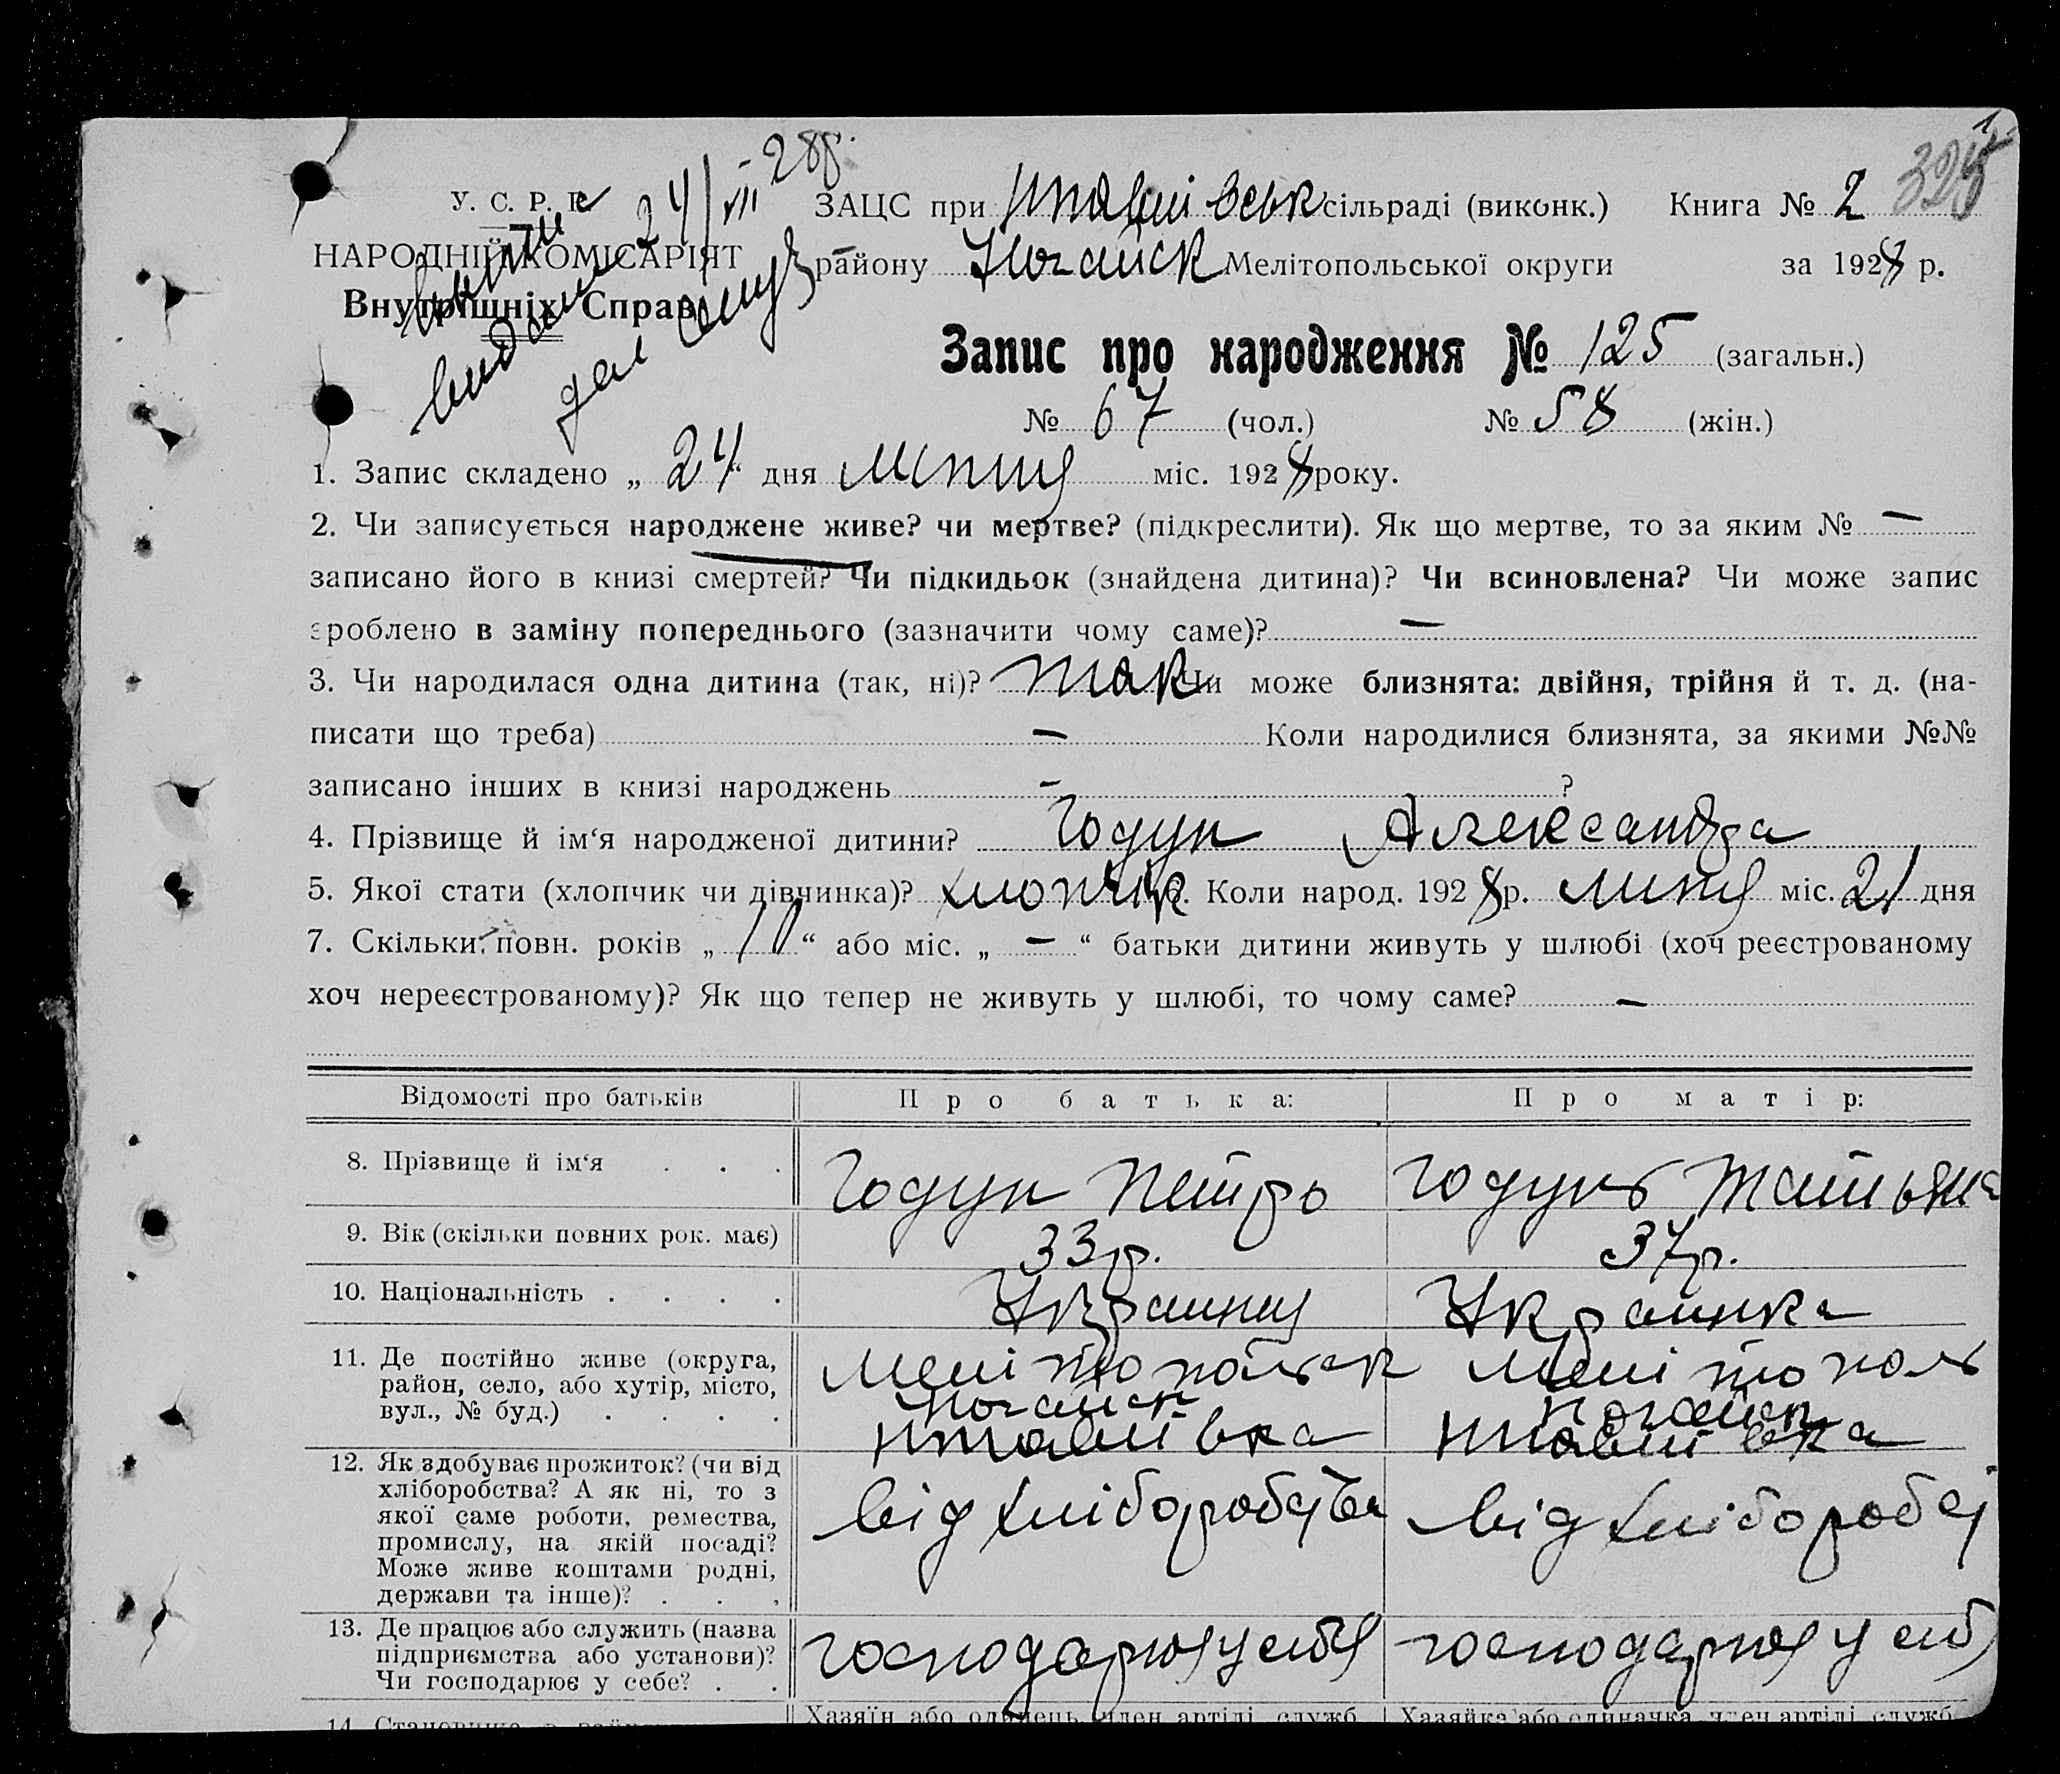 24/VII-28р.
У. С. Р. Р.
НАРОДНІЙ КОМІСАРІЯТ
Внутрішніх Справ
ЗАЦС при сільраді (виконк.) Книга № 2
району Ногайськ Мелітопольської округи за 1928 р.
Запис про народження № 125 (загальн.)
№ 67 (чол.) № 58 (жін.)
1. Запис складено „ 24 “ дня липня міс. 1928 року.
2. Чи записується народжене живе? чи мертве? (підкреслити). Як що мертве, то за яким № —
записано його в книзі смертей? Чи підкидьок (знайдена дитина)? Чи всиновлена? Чи може запис
зроблено в заміну попереднього (зазначити чому саме)? —
3. Чи народилася одна дитина (так, ні)? так Чи може близнята: двійня, трійня й т. д. (на-
писати що треба) — Коли народилися близнята, за якими №№
записано інших в книзі народжень — ?
4. Прізвище й ім‘я народженої дитини? Годун Александра
5. Якої стати (хлопчик чи дівчинка)? хлопчик 6. Коли народ. 1928 р. липня міс. 21 дня
7. Скільки повн. років „ 10 “ або міс. „ — “ батьки дитини живуть у шлюбі (хоч реєстрованому
хоч нереєстрованому)? Як що тепер не живуть у шлюбі, то чому саме? —
Відомості про батьків Про батька: Про матір:
8. Прізвище й ім‘я . . . Годун Петро Годунь Татьяна
9. Вік (скільки повних рок. має) 33 р. 37 р.
10. Національність . . . . Украинец Украинка
11. Де постійно живе (округа,
район, село, або хутір, місто,
вул., № буд.) . . . .
Мелітопольск Ногайск
Мелітополь Ногайск
12. Як здобуває прожиток? (чи від
хліборобства? А як ні, то з
якої саме роботи, ремества,
промислу, на якій посаді?
Може живе коштами родні,
держави та інше)? . . .
від хліборобства
від хлібороб
13. Де працює або служить (назва
підприємства або установи)?
Чи господарює у себе? . .
господарює у себе
господарює у себ
Хазяїн або одинець, член артілі, служб
Хазяйка або одиначка, член артілі, служб